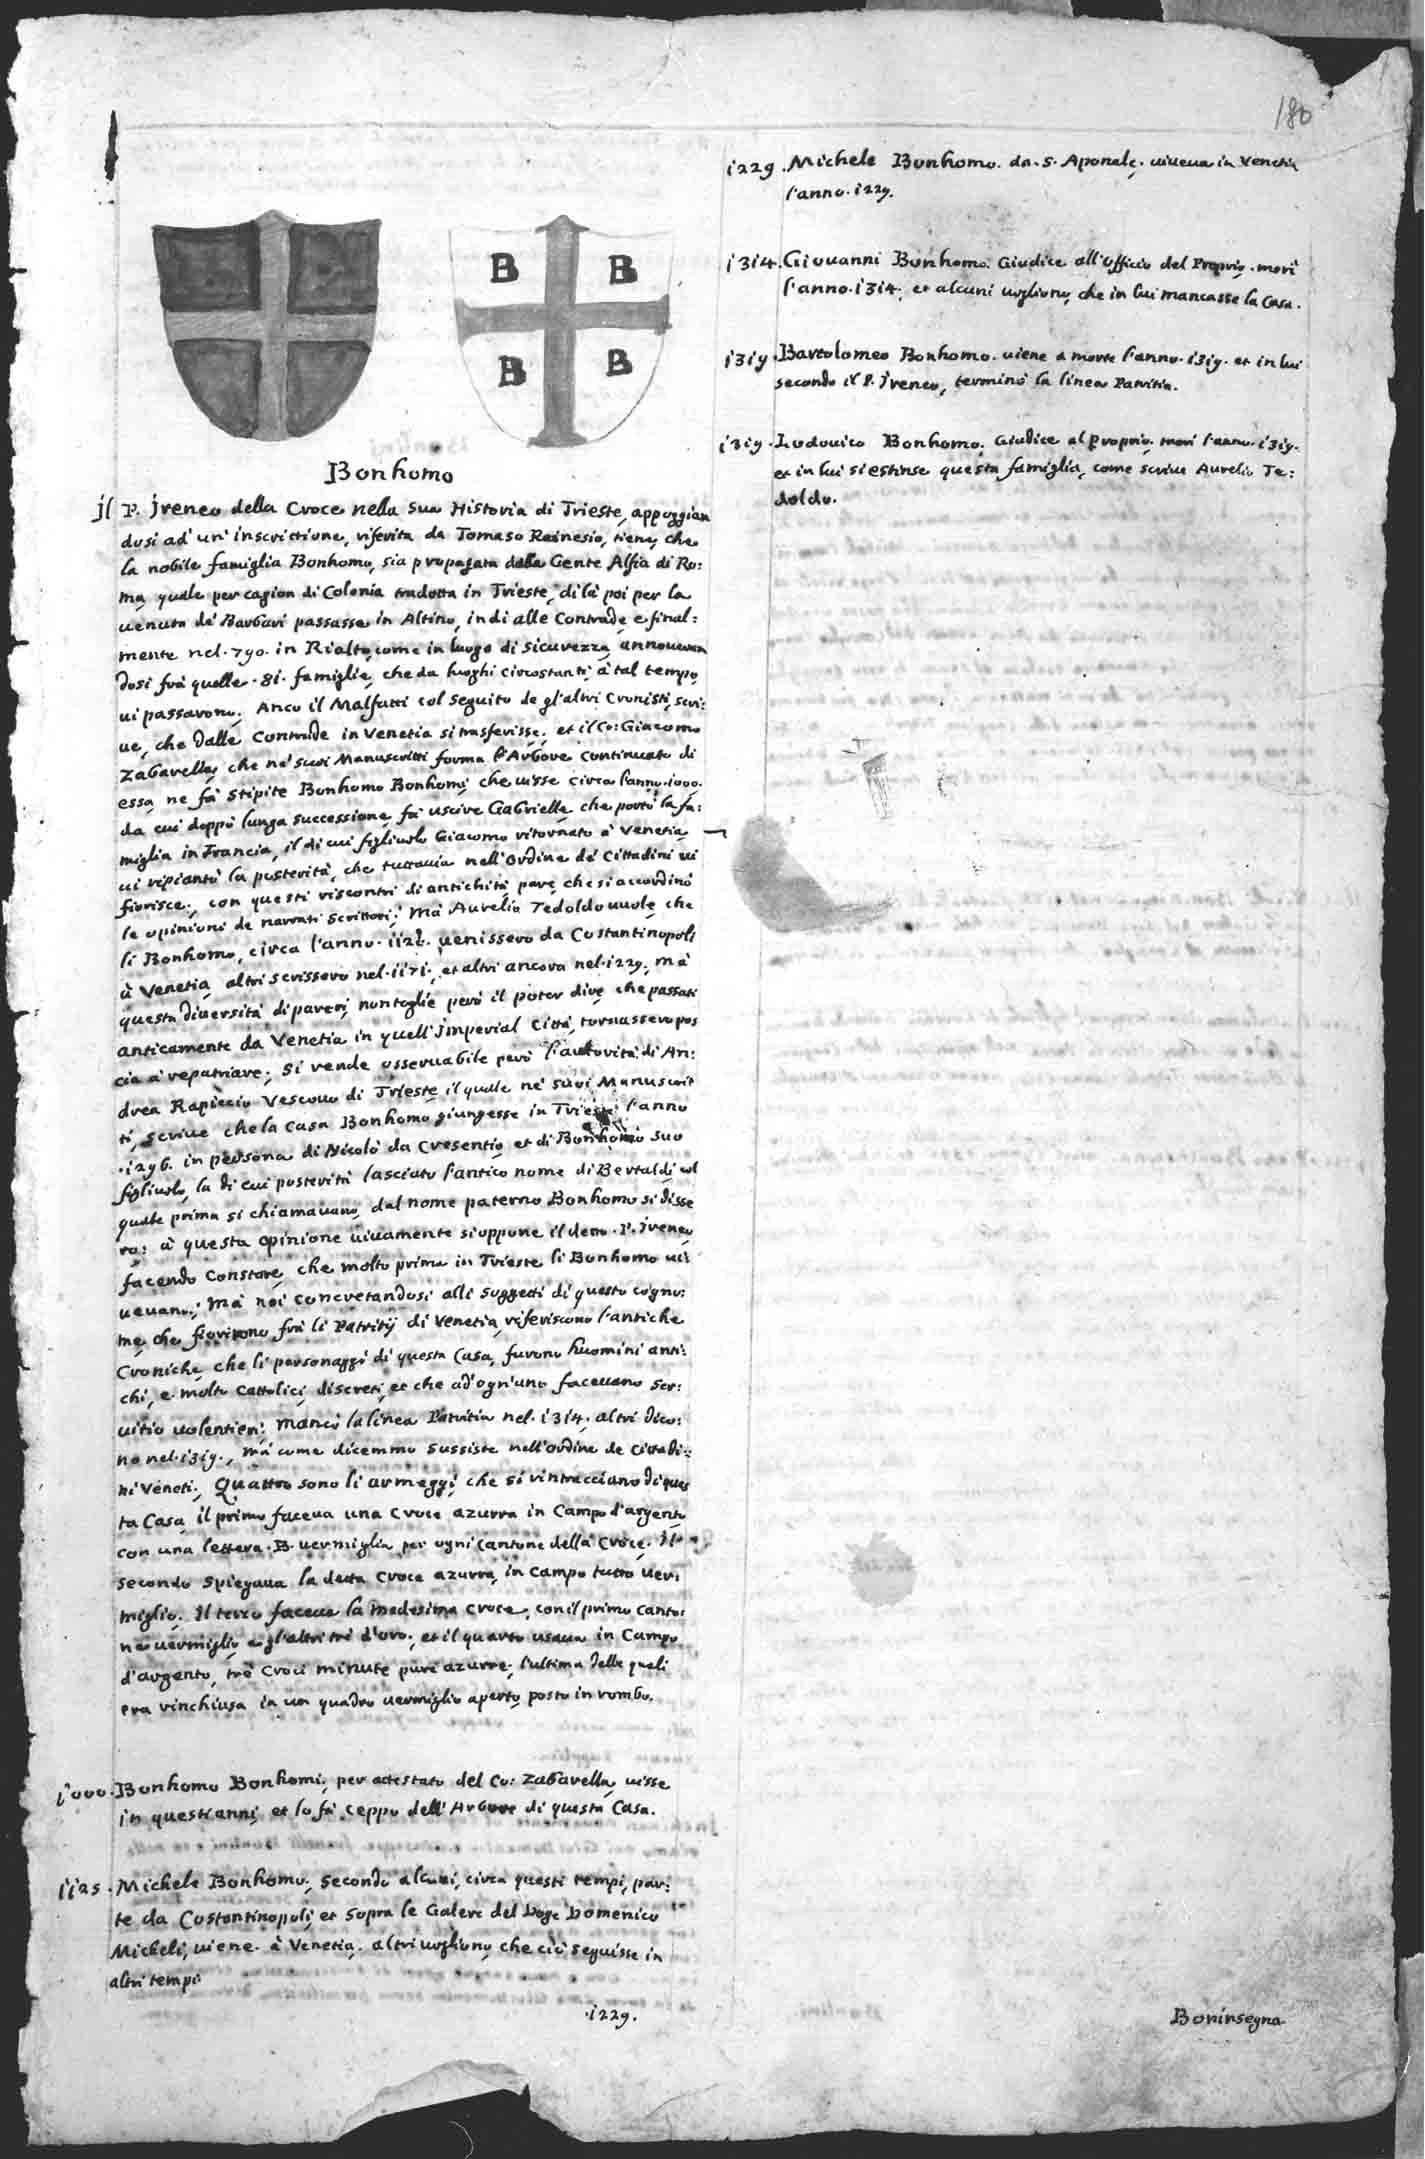 180
B B
B B
Bonhomo
jl P. jreneo della Croce nella sua Historia di Trieste, appoggian
dosi ad' un' inscrittione, riferita da Tomaso Reinesio, tiene, che
la nobile famiglia Bonhomo, sia propagata dalla Gente Alfia di Ro:
ma, quale per cagion di Colonia tradotta in Trieste, di là poi per la
uenuta de' Barbari passasse in Altino, indi alle Contrade, e final:
mente nel. 790. in Rialto, come in luogo di sicurezza, annoueran
dosi frà quelle. 8i. famiglie, che da luoghi circostanti, à tal tempo,
ui passarono. Anco il Malfatti col seguito de gl'altri Cronisti, scri:
ue, che dalle Contrade in Venetia si trasferisse; et il Co: Giacomo
Zabarella, che ne' suoi Manuscritti forma l'Arbore continuato di
essa, ne fà stipite Bonhomo Bonhomi, che uisse circa l'anno. i000.
da cui doppò lunga successione, fà uscire Gabrielle, che portò la fa:
miglia in Francia, il di cui figliuolo Giacomo ritornato à Venetia,
ui ripiantò la posterità, che tuttauia nell'ordine de' Cittadini ui
fiorisce; con questi riscontri di antichità, pare, che si accordino
le opinioni de narrati Scrittori; Mà Aurelio Tedoldo uuole, che
li Bonhomo, circa l'anno. ii2i. uenissero da Costantinopoli
à Venetia, altri scrissero nel. ii7i., et altri ancora nel. i229, mà
questa diuersità di pareri, non toglie però il poter dire, che passati
anticamente da Venetia in quell' jmperial Città, tornassero pos
cia à repatriare; Si rende osseruabile però l'autorità di An:
drea Rapiccio Vescouo di Trieste, il quale ne' suoi Manuscrit
ti, scriue che la Casa Bonhomo, giungesse in Trieste l'anno
.i296. in persona di Nicolò da Cresentio, et di Bonhomo suo
figliuolo, la di cui posterità lasciato l'antico nome di Bertaldi, col
quale prima si chiamauano, dal nome paterno Bonhomo si disse
ro: à questa opinione uiuamente si oppone il detto. P. jreneo,
facendo constare, che molto prima in Trieste li Bonhomo ui:
ueuano; Mà noi concretandosi alli soggetti di questo cogno:
me, che fiorirono frà li Patritij di Venetia, riferiscono l'antiche
Croniche, che li personaggi di questa Casa, furono huomini anti:
chi, e molto Cattolici, discreti, et che ad'ogn'uno faceuano ser:
uitio uolentieri; Mancò la linea Patritia nel. i3i4, altri dico:
no nel. i3i9., mà come dicemmo sussiste nell'ordine de Cittadi:
ni Veneti. Quattro sono li armeggi, che si rintracciano di ques
ta Casa, il primo faceua una Croce azurra in Campo d'argento
con una lettera. B. uermiglia per ogni Cantone della Croce. Il
secondo spiegaua la detta Croce azurra, in Campo tutto uer:
miglio. Il terzo faceua la medesima Croce, con il primo canto:
ne uermiglio, e gl'altri trè d'oro, et il quarto usaua in Campo
d'argento, trè Croci minute pure azurre, l'ultima delle quali
era rinchiusa in un quadro uermiglio aperto, posto in rombo.
i000. Bonhomo Bonhomi, per attestato del Co: Zabarella, uisse
in questi anni, et lo fà ceppo dell' Arbore di questa Casa.
ii25. Michele Bonhomo, secondo alcuni, circa questi tempi, par:
te da Costantinopoli, et sopra le Galere del Doge Domenico
Micheli, uiene à Venetia. altri uogliono, che ciò seguisse in
altri tempi
.i229.
i229. Michele Bonhomo. da. S. Aponale, uiueua in Venetia
l'anno. i229.
i3i4. Giouanni Bonhomo. Giudice all'Officio del Proprio. morì
l'anno. i3i4, et alcuni uogliono, che in lui mancasse la Casa.
i3i9. Bartolomeo Bonhomo. uiene a morte l'anno. i3i9. et in lui
secondo il P. jreneo, terminò la linea Patritia.
i3i9. Lodouico Bonhomo. Giudice al Proprio. morì l'anno. i3i9.
et in lui si estinse questa famiglia, come scriue Aurelio Te:
doldo.
Boninsegna